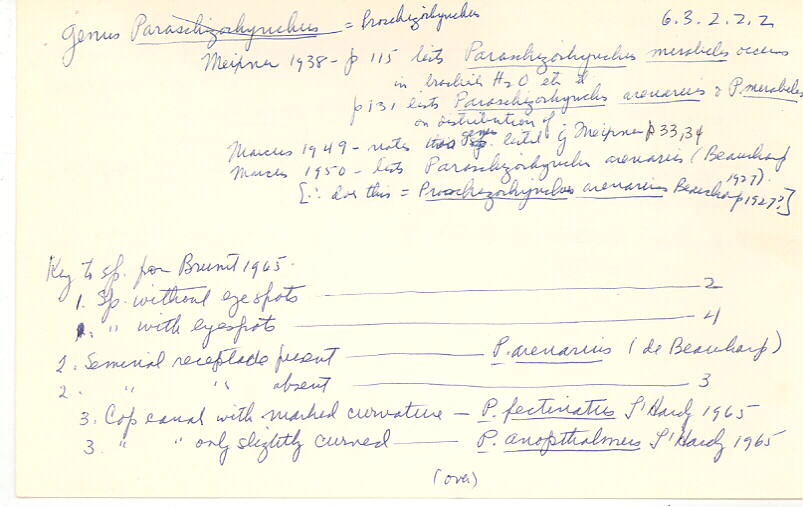 6.3.2.2.2
Genus Paraschizorhynchus = Proschizorhynchus
Meixner 1938 - p 115 lists Paraschizorhynchus mirabilis occurs
in brackish H2O etc
p 131 lists Paraschizorhynchus arenarius & P. mirabilis
on distribution of
Marcus 1949 - notes this genus listed by Meixner p 33,34
Marcus 1950 - lists Paraschizorhynchus arenarius (Beauchamp
1927).
[∴ does this = Proschizorhynchus arenarius Beauchamp 1927?]
Key to sp. from Brunet 1965.
1. Sp. without eyespots 2
1. " with eyespots 4
2. Seminal receptacle present P. arenarius (de Beauchamp)
2. " " absent 3
3. Cop canal with marked curvature - P. pectinatus L'Hardy 1965
3. " " only slightly curved P. anopthalmus L'Hardy 1965
(over)